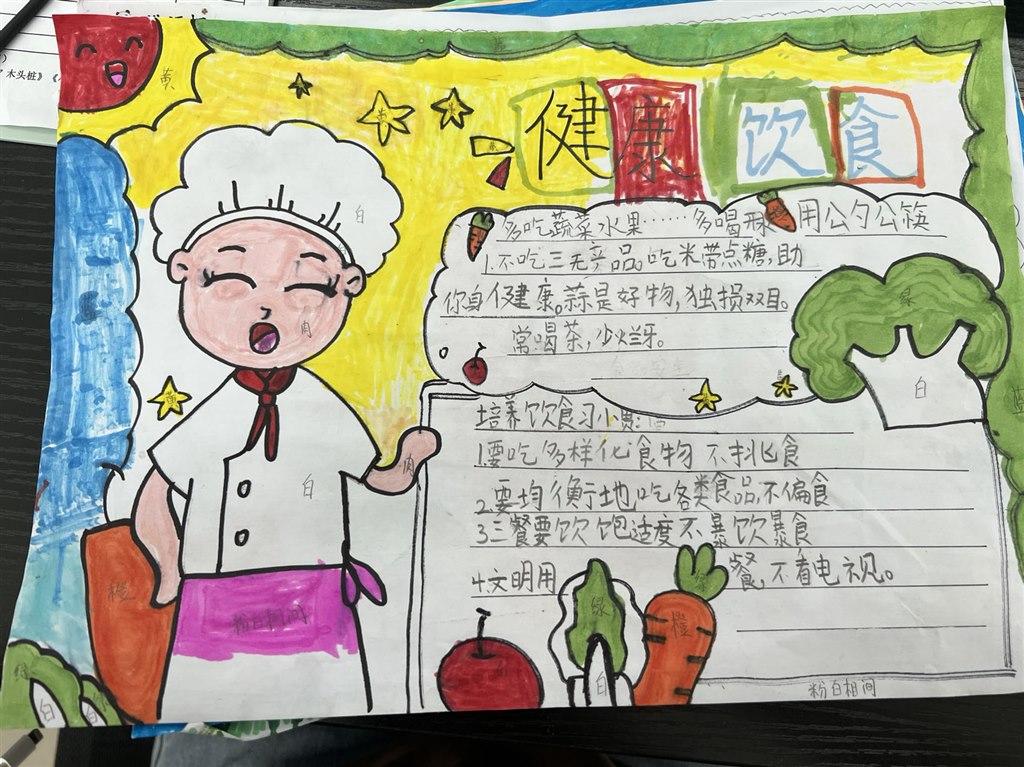 木头桩》《
黄
黄
黄
健康饮食
白
多吃蔬菜水果……多喝水 用公勺公筷
橙
1.不吃三无产品。吃米带点糖,助
你身健康。蒜是好物,独损双目。
常喝茶,少烂牙。
绿
白
肉
黄
蓝
培养饮食习惯:
1.要吃多样化食物 不挑食
肉
白
2.要均衡地吃各类食品,不偏食
3.三餐要饮饱适度不暴饮暴食
4.文明用餐,不看电视。
橙
粉白相间
绿
橙
绿
绿
白
白
白
粉白相间